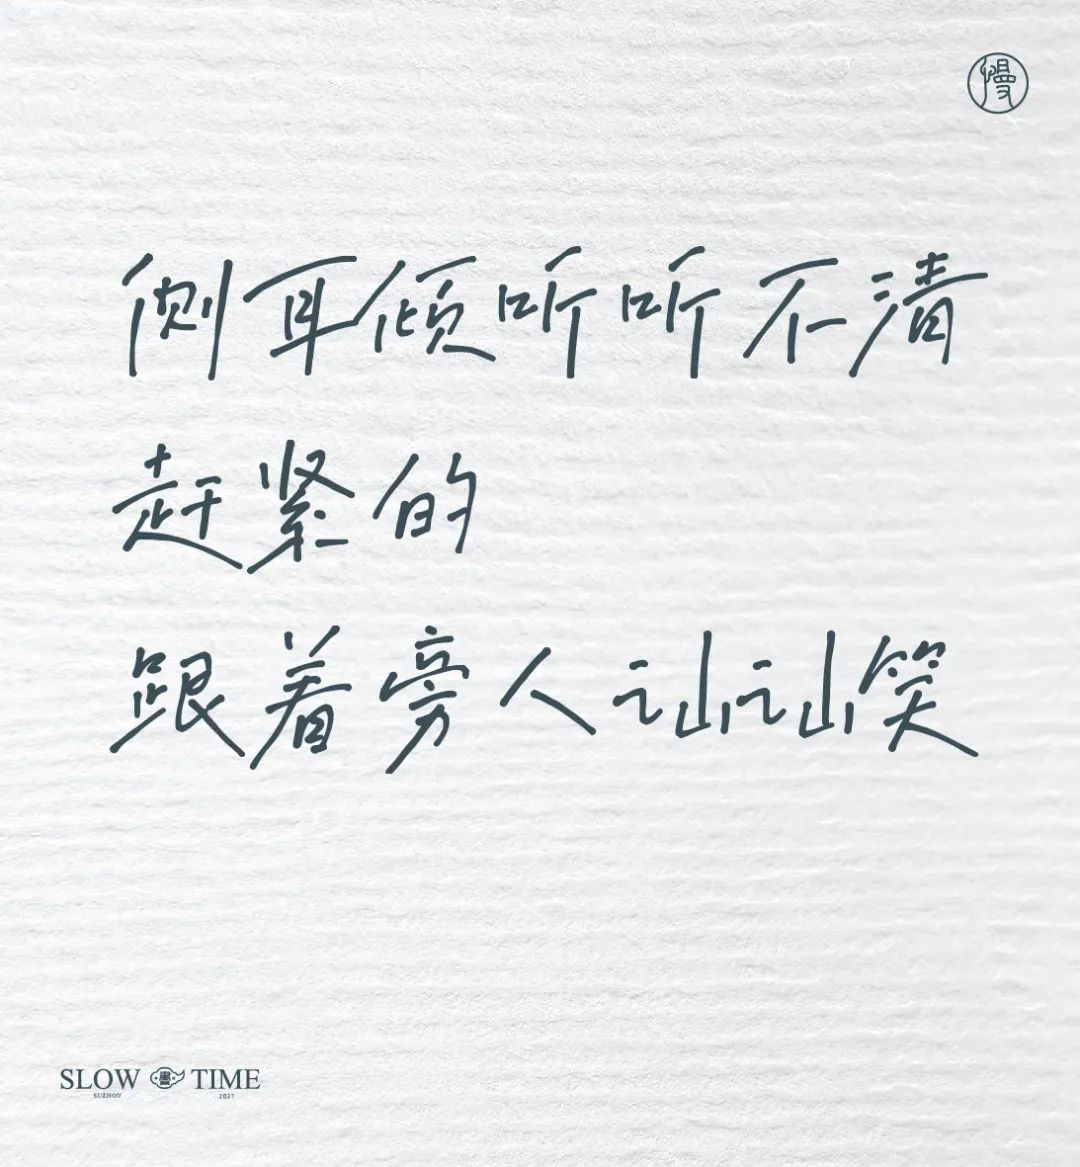 慢
侧耳倾听听不清
赶紧的
跟着旁人讪讪笑
SLOW 書 TIME
SUZHOU 2021